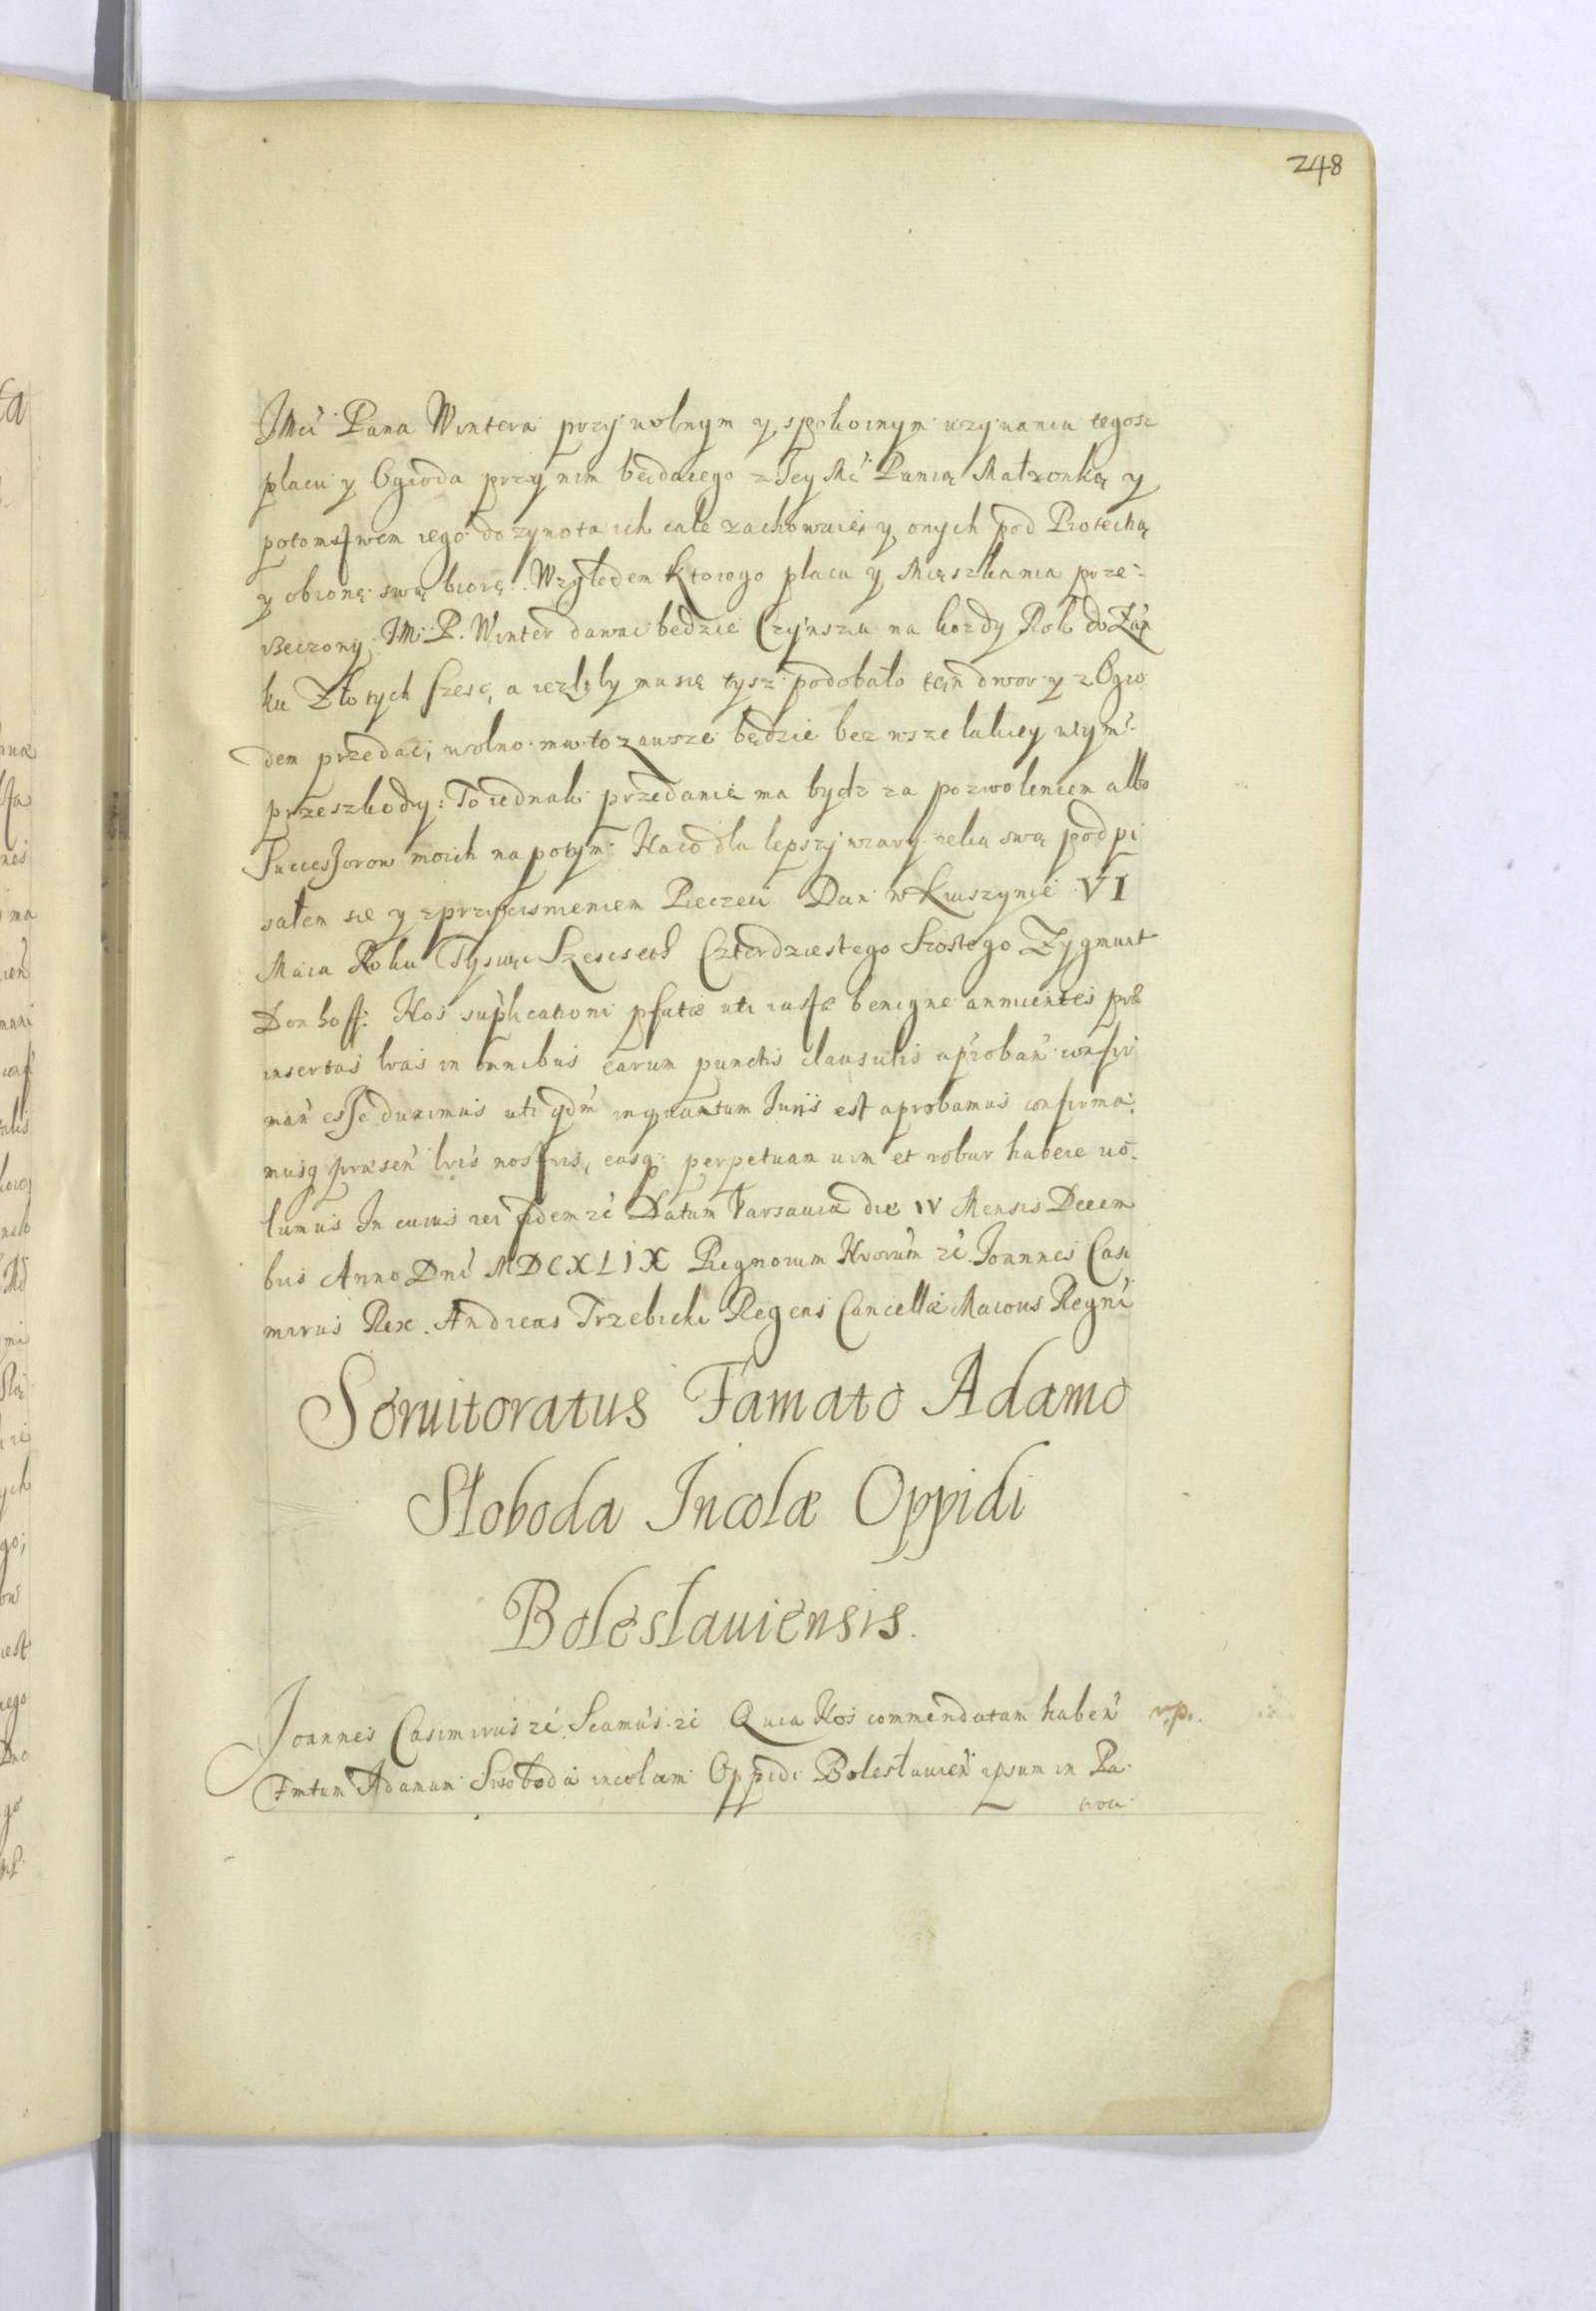 248
JMci Pana Wintera przy wolnym y spokoinym uzywaniu tegosz
placu y Ogroda przy nim będacego z Jey Mci Panią Małzonką y
potomstwem iego do zywota ich cale zachowuię y onych pod Protechą
y obronę swą biorę. Względem ktorego placu y Mięszkania prze-
rzeczony JMi P. Winter dawac będzie Czynszu na kozdy Rok do Zam
ku Złotych szesc, a iezliby mu się tysz podobało ten dwor y z Ogro
dem przedac, wolno mu to zawsze będzie bez wszelakiey w tym
przeszkody: To iednak przedanie ma bydz za pozwoleniem albo
Successorow moich napotym. Na co dla lepszy wiary ręką swą podpi
sałem się y z przycisnieniem Pieczęci Dan w Kruszynie VI
Maia Roku Tysiąc Szescseth Czterdziestego Szostego Zygmunt
Donhoff: Nos suplicationi pfatæ uti iustæ benigne annuentes præ
insertas lras in omnibus earum punctis clausulis aproban confir
man esse duximus uti qdm inquantum Juris est aprobamus confirma-
musq præsen lris nostris, easq perpetuam uim et robur habere uo-
lumus In cuius rei fidem zc Datum Varsauiæ die IV Mensis Decem
bris Anno Dni MDCXLIX Regnorum Nrorum zc. Joannes Casi
mirus Rex. Andreas Trzebicki Regens Cancellæ Maioris Regni
Seruitoratus Famato Adamo
Słoboda Incolæ Oppidi
Bolesłauiensis.
Joannes Casimirus zc. Scamus zc Quia Nos commendatam haben
Fmtum Adamum Swoboda incolam Oppidi Bolesłauien ipsum in Pa